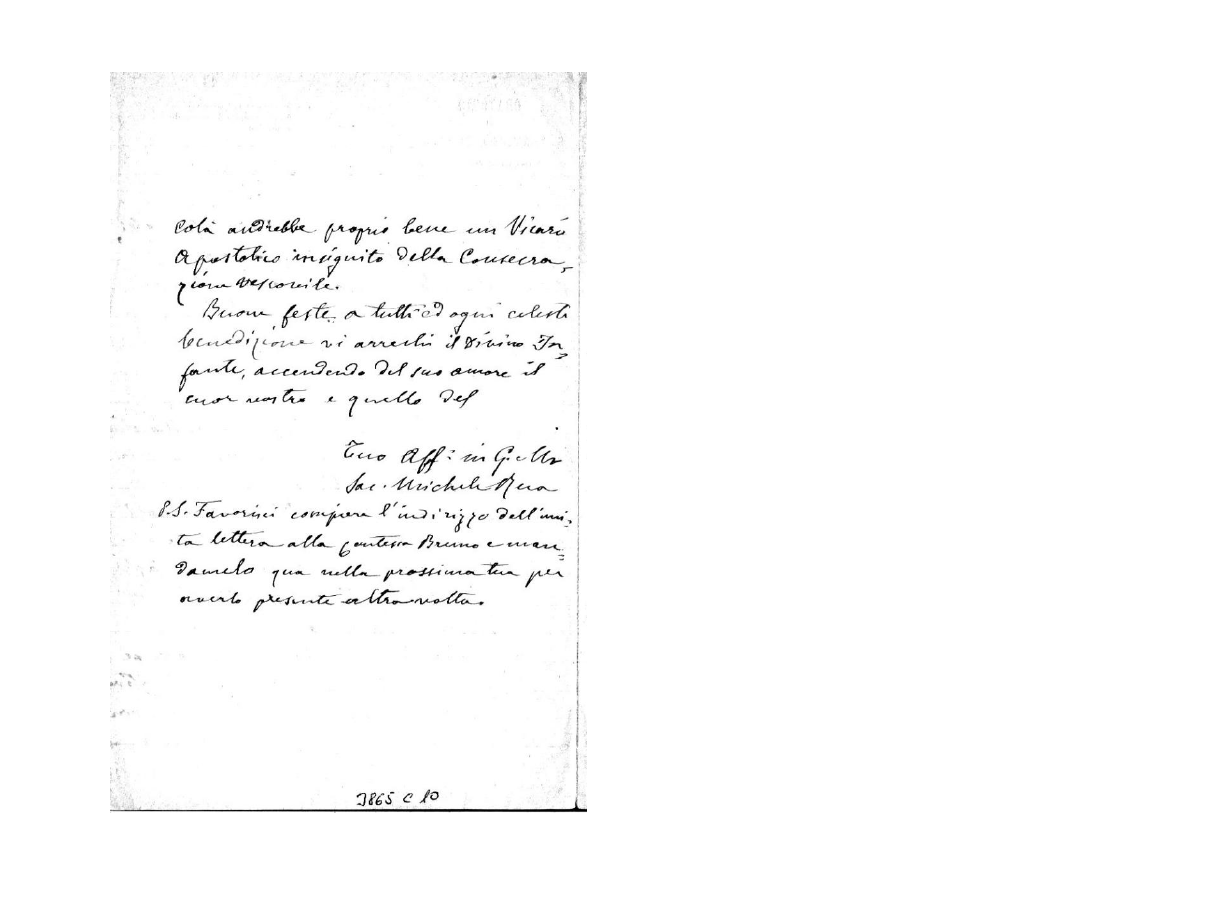 Colà andrebbe proprio bene un Vicario
Apostolico insignito della Consecra-
zione vescovile.
Buone feste a tutti ed ogni celeste
benedizione vi arrechi il Divino In-
fante, accendendo del suo amore il
cuor vostro e quello del
Tuo Aff: in G. e M.
Sac. Michele Rua
P.S. Favorisci compiere l'indirizzo dell'uni-
ta lettera alla contessa Bruno e man-
damelo qua nella prossima tua per
averlo presente altra volta.
3865 C 10